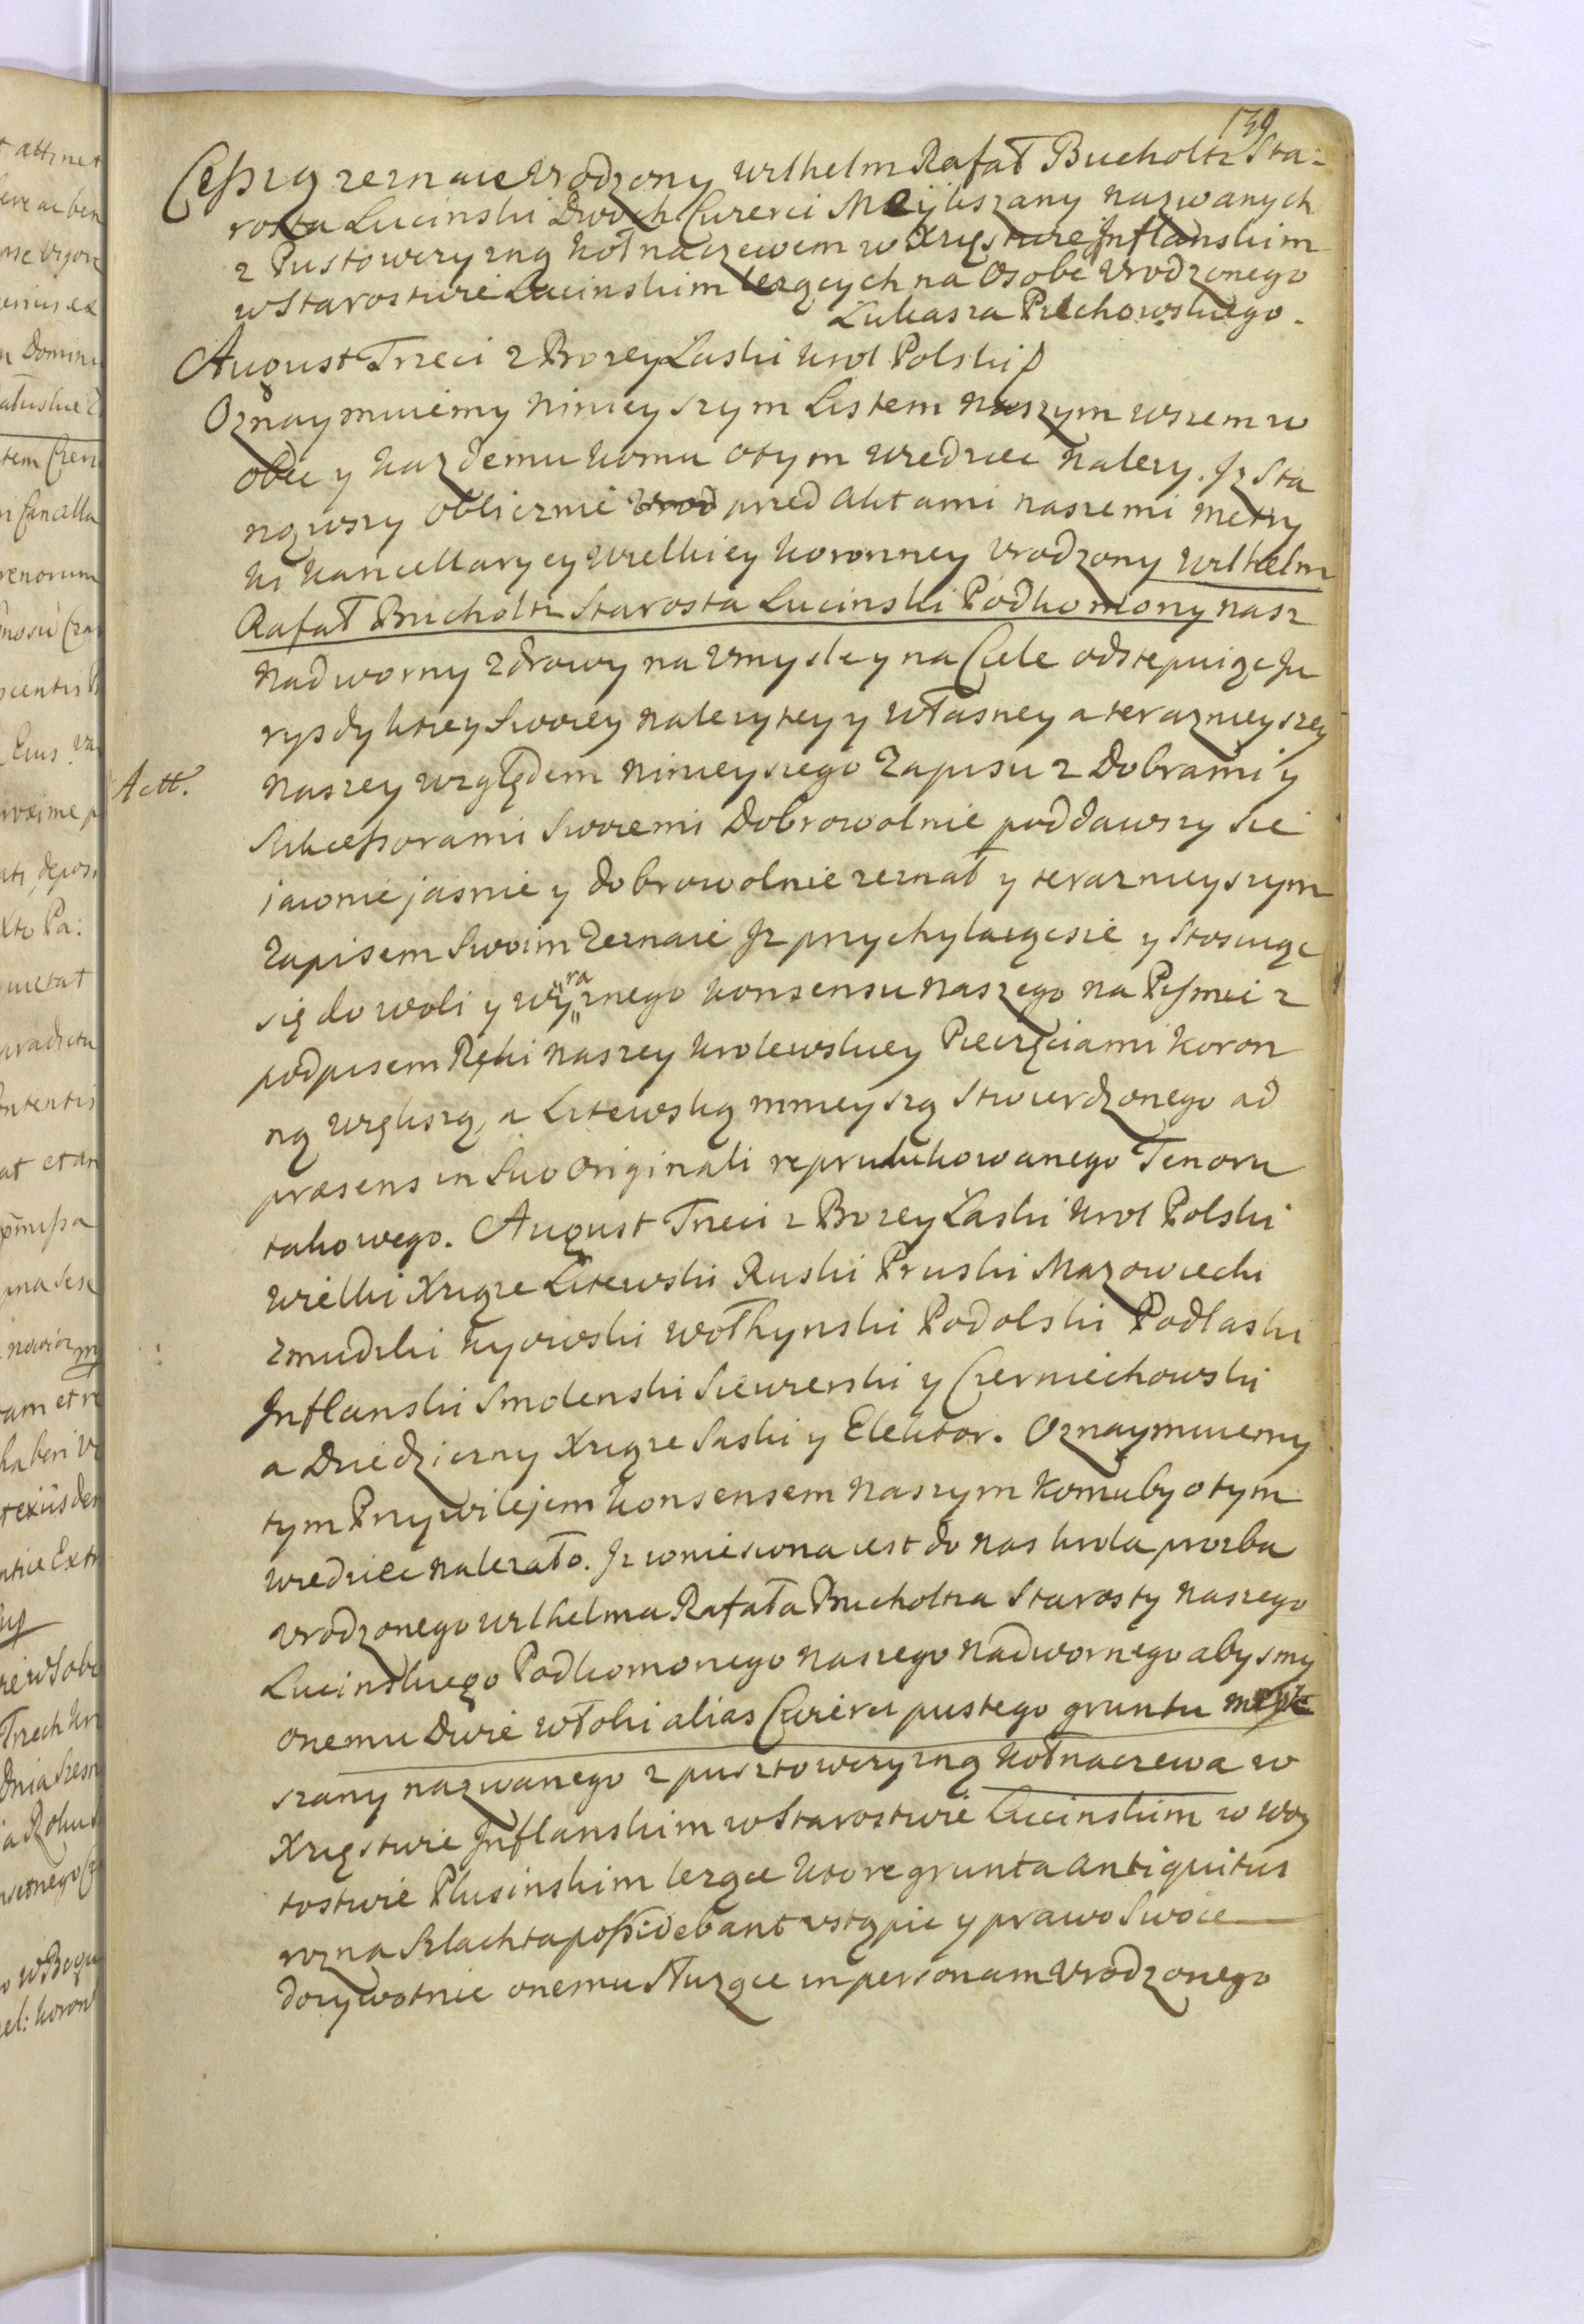 139
Cessyą zeznaie Urodzony Wilhelm Rafał Bucholtz Sta-
rosta Lucinski Dwoch Curerci Meykszany nazwanych
z Pustowczyzną Kołnaczewem w Xięstwie Inflanskim
w Starostwie Lucinskim lezących na Osobę Urodzonego
Łukasza Piechowskiego.
August Trzeci z Bozey Łaski Krol Polski
Oznaymuiemy ninieyszym Listem naszym wszem w
obec y kazdemu komu o tym wiedziec nalezy. Iz Sta
nąwszy oblicznie przed Aktami naszemi Metry
ki Kancellaryey Wielkiey Koronney Urodzony Wilhelm
Rafał Bucholtz Starosta Lucinski Podkomony nasz
Nadworny zdrowy na Umysle y na Ciele odstepuiąc Ju
rysdykcyey Swoiey nalezytey y własney a teraznieyszey
Actt.
naszey względem ninieyszego Zapisu z Dobrami y
Sukcessorami Swoiemi Dobrowolnie poddawszy się
jawnie jasnie y dobrowolnie zeznał y teraznieyszym
Zapisem Swoim Zeznaie Iz przychylaiąc sie y Stosuiąc
się do woli y wyraznego konsensu naszego na Pismie z
podpisem Ręki naszey Krolewskiey Pieczęciami Koron
ną większą, a Litewską mnieyszą Stwierdzonego ad
præsens in Suo Originali reprodukowanego Tenoru
takowego. August Trzeci z Bozey Łaski Krol Polski
Wielki Xiąze Litewski Ruski Pruski Mazowiecki
Zmudzki Kyowski Wołhynski Podolski Podlaski
Inflanski Smolenski Siewierski y Czerniechowski
a Dziedziczny Xiąze Saski y Elektor. Oznaymuiemy
tym Przywilejem Konsensem naszym komuby o tym
wiedziec nalezało. Iz wniesiona iest do nas Krola prozba
Urodzonego Wilhelma Rafała Bucholtza Starosty naszego
Lucinskiego Podkomonego naszego nadwornego abysmy
onemu Dwie włoki alias Curerci pustego gruntu Meyk
szany nazwanego z pusztowczyzną Kołnaczewa w
Xięstwie Inflanskim w Starostwie Lucinskim w Woy
tostwie Plusinskim lezące ktore grunta antiquitus
rozna Szlachta possidebant ustąpic y prawo Swoie
dozywotnie onemu słuzące in personam Urodzonego